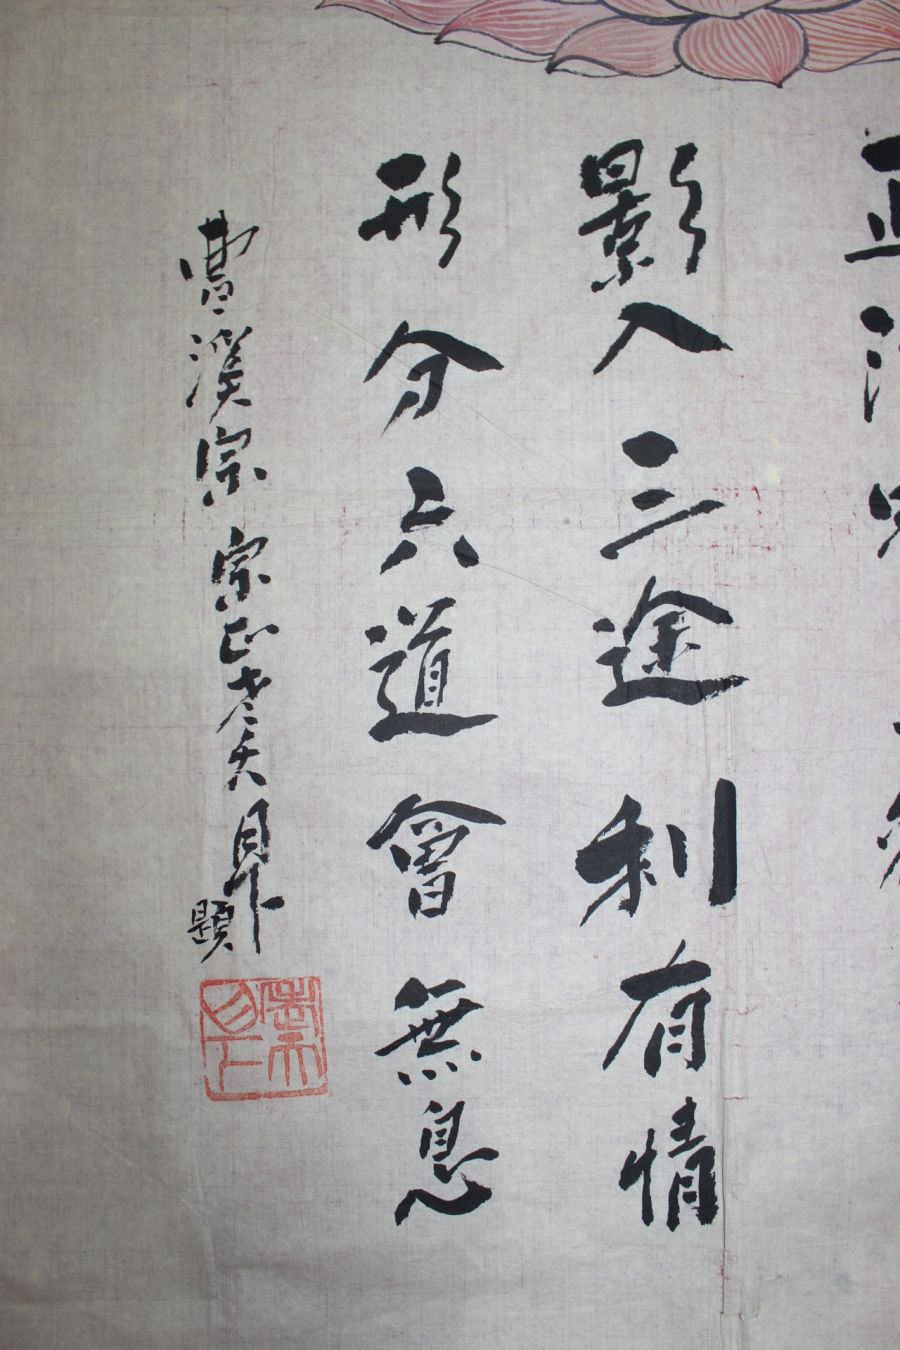 正法
影入三途利有情
形分六道會無息
曹溪宗 宗正 老天 月下 題